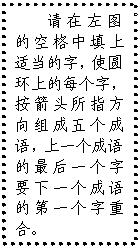 请在左图
的空格中填上
适当的字，使圆
环上的每个字，
按箭头所指方
向组成五个成
语，上一个成语
的最后一个字
要下一个成语
的第一个字重
合。